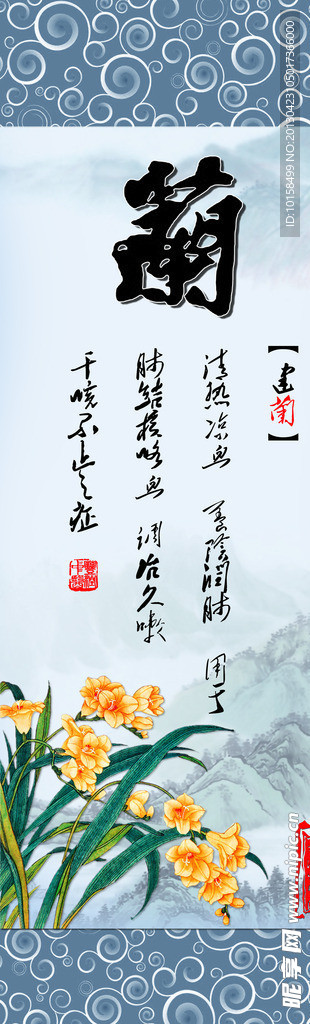 蘭
【建蘭】
清热凉血 养陰潤肺 用于
肺结核咯血 调治久嗽
干咳不止之症
ID:10158499 NO:20130423105017366000
昵享网 www.nipic.cn